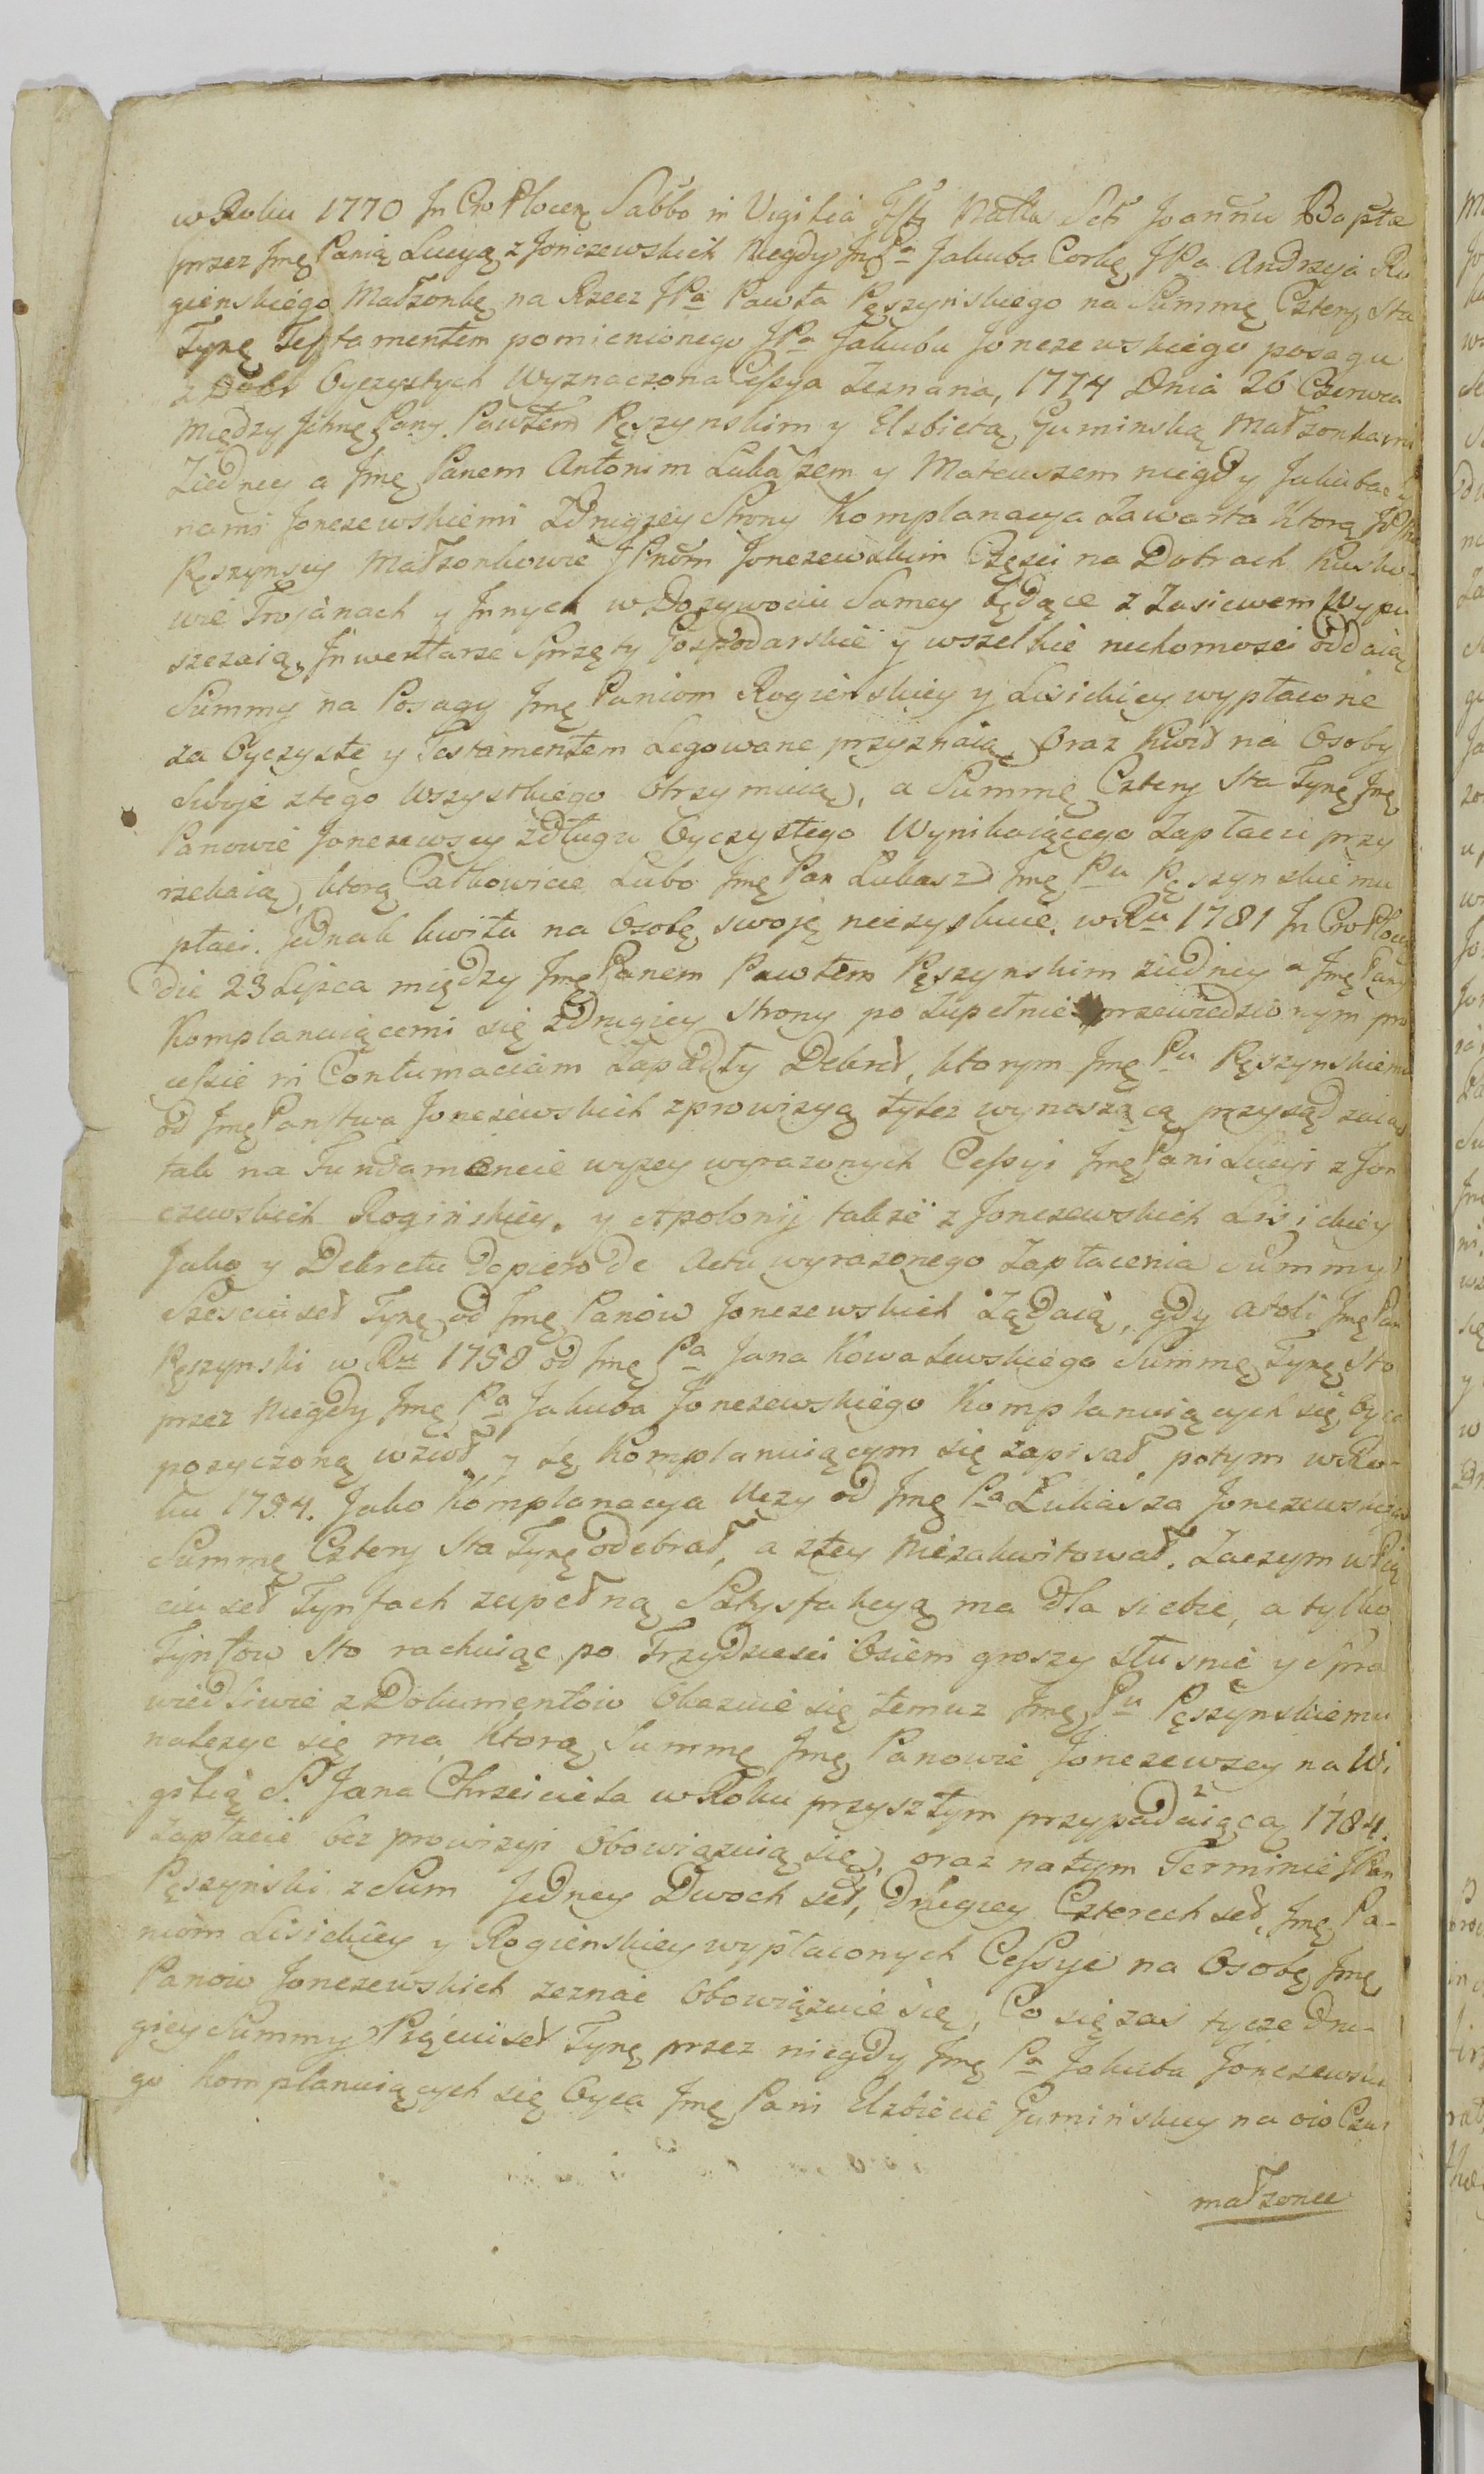 w Roku 1770 In Cro Plocen Sabbo in Vigilia Fsti Natlis Scti Joannis Baptae
przez Jmę Panią Lucyą z Jonczewskich Niegdy Jmę Pa Jakuba Corkę JPa Andrzeja Ro
gienskiego Małzonkę na Rzecz JPa Pawła Pęszynskiego na Summę Cztery Sta
Tynę Testamentem pomienionego JPa Jakuba Jonczewskiego posagu
z Dobr Oyczystych Wyznaczona Cessya Zeznana, 1774 Dnia 26 Czerwca
między Ichmę Pany Pawłem Pęszynskim y Elzbietą Guminską Małzonkami
Ziedney a Jmę Panem Antonim Łukaszem y Mateuszem niegdy Jakuba Sy
nami Jonczewskiemi Zdrugiey Strony Komplanacya Zawarta ktorą JPP
Pęszynscy Małzonkowie JPnom Jonczewskim Części na Dobrach Rusko
wie Trojanach y Innych w Dozywociu Samey będące z Zasiewem Wypu
szczaią, Inwentarze Sprzęty Gospodarskie y wszelkie ruchomosci oddaią
Summy na Posagy Jmę Paniom Rogienskiey y Lisickiey wypłacone
za Oyczyste y Testamentem Legowane przyznaią, Oraz Kwit na Osoby
Swoje ztego Wszystkiego Otrzymuią, a Summę Cztery Sta Tynę Jmę
Panowie Jonczewscy zdługu Oyczystego Wynikaiącego Zapłacic przy
rzekaią, ktorą Całkowicie Lubo Jmę Pan Łukasz Jmę Pu Pęszynskiemu
płaci. Jednak kwitu na Osobę swoję niezyskuie. w Ru 1781 In Cro Plocen
die 23 Lipca między Jmę Panem Pawłem Pęszynskim ziedney a Jmę Pany
Komplanuiącemi się zDrugiey Strony po Zupełnie przewiedzionym pro
cessie in Contumaciam Zapadły Dekret, ktorym Jmę Pu Pęszynskiemu
od Jmę Panstwa Jonczewskich zprowizyą tylez wynoszącą przysądzaią
tak na Fundamencie wyzey wyrazonych Cessyi Jmę Pani Lucyi z Jon
czewskich Roginskiey, y Appolonij także z Jonczewskich Lisickiey
Jako y Dekretu dopiero de Actu wyrazonego Zapłacenia Summy
Szesciuset Tynę od Jmę Panow Jonczewskich Ządaią, gdy atoli Jmę Pan
Pęszynski w Ru 1758 od Jmę Pa Jana Kowalewskiego Summę Tynę Sto
przez Niegdy Jmę Pa Jakuba Jonczewskiego Komplanuiących się Oyca
pozyczoną wzioł y tę Komplanuiącym się zapisał potym w Ro-
ku 1774. Jako Komplanacya Uczy od Jmę Pa Łukasza Jonczewskiego
Summę Cztery Sta Tynę odebrał, a ztey niezakwitował. Zaczym w Pię
ciu set Tynfach zupełną Satysfakcyą ma dla siebie, a tylko
Tynfow Sto rachuiąc po Trzydziesci Osiem groszy słusnie y Spra
wiedliwie zDokumentow Okazuie się temuz Jmę Pu Pęszynskiemu
nalezyc się ma, ktorą Summę Jmę Panowie Jonczewscy na Wi
gilią St Jana Chrzciciela w Roku przyszłym przypadaiącą 1784.
zapłacic bez prowizyi Obowiązuią się, oraz natym Terminie JPan
Pęszynski z Sum Jedney Dwoch set, Drugiey Czterech set, Jmę Pa-
niom Lisickiey y Rogienskiey wypłaconych Cessye na Osobę Jmę
Panow Jonczewskich zeznac Obowiązuie się, Co się zas tycze dru-
giey Summy Pięciuset Tynę przez niegdy Jmę Pa Jakuba Jonczewskie
go Komplanuiących się Oyca Jmę Pani Elzbiecie Guminskiey na ow Czas
małzonce